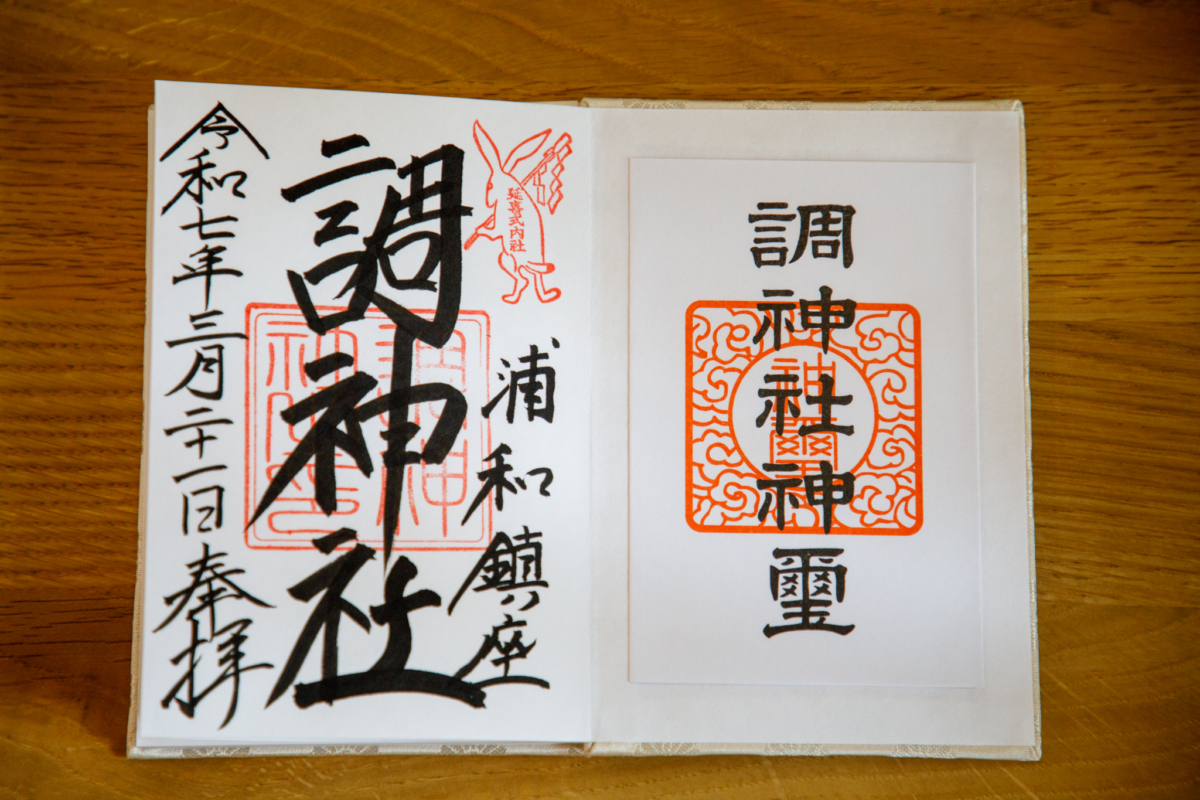 調神社神璽
神璽
延喜式内社
浦和鎮座
調神社
調神社印
令和七年三月二十一日奉拝